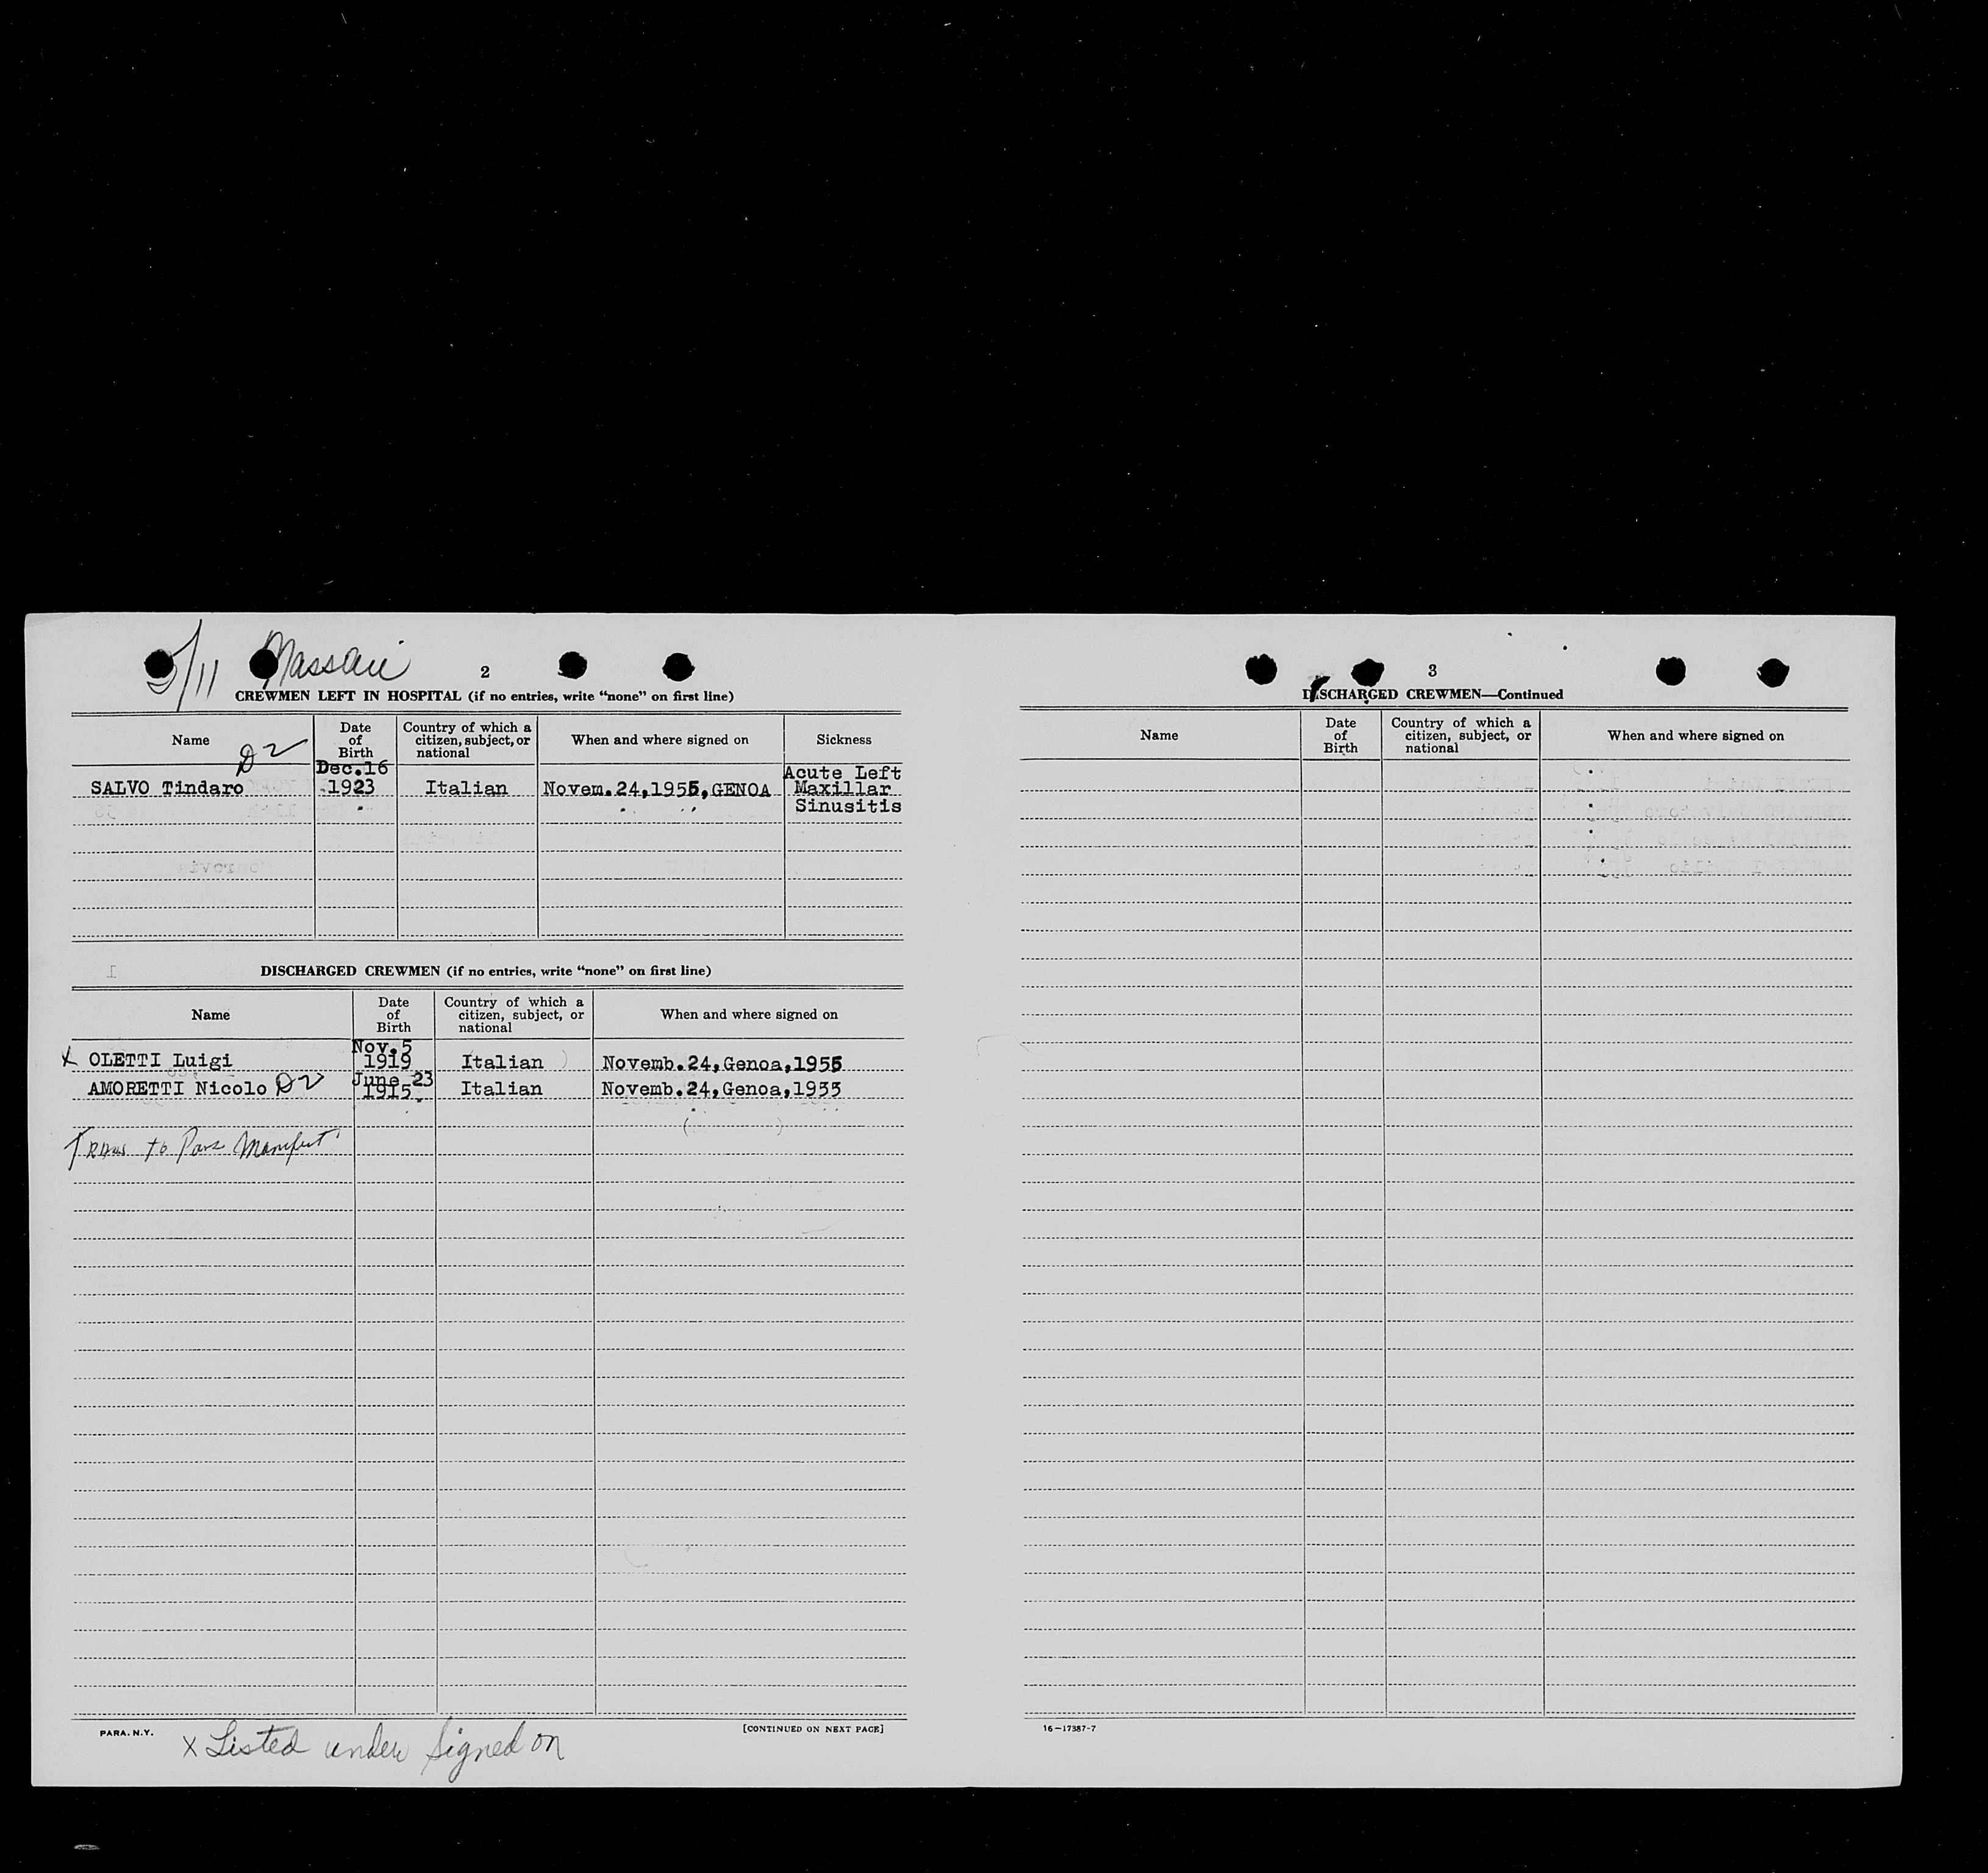 5/11
2
CREWMEN LEFT IN HOSPITAL (if no entries, write “none” on first line)
Name
Date of Birth
Country of which a citizen, subject, or national
When and where signed on
Sickness
D2
SALVO Tindaro
Dec.16 1923
Italian
Novem.24,1955,GENOA
Acute Left Maxillar Sinusitis
DISCHARGED CREWMEN (if no entries, write “none” on first line)
Name
Date of Birth
Country of which a citizen, subject, or national
When and where signed on
X OLETTI Luigi
Nov.5 1919
Italian
Novemb.24,Genoa,1955
AMORETTI Nicolo D2
June 23 1915
Italian
Novemb.24,Genoa,1955
Trans to Pass Manifest
PARA. N.Y.
[CONTINUED ON NEXT PAGE]
X Listed under Signed on
3
DISCHARGED CREWMEN—Continued
Name
Date of Birth
Country of which a citizen, subject, or national
When and where signed on
16—17387-7